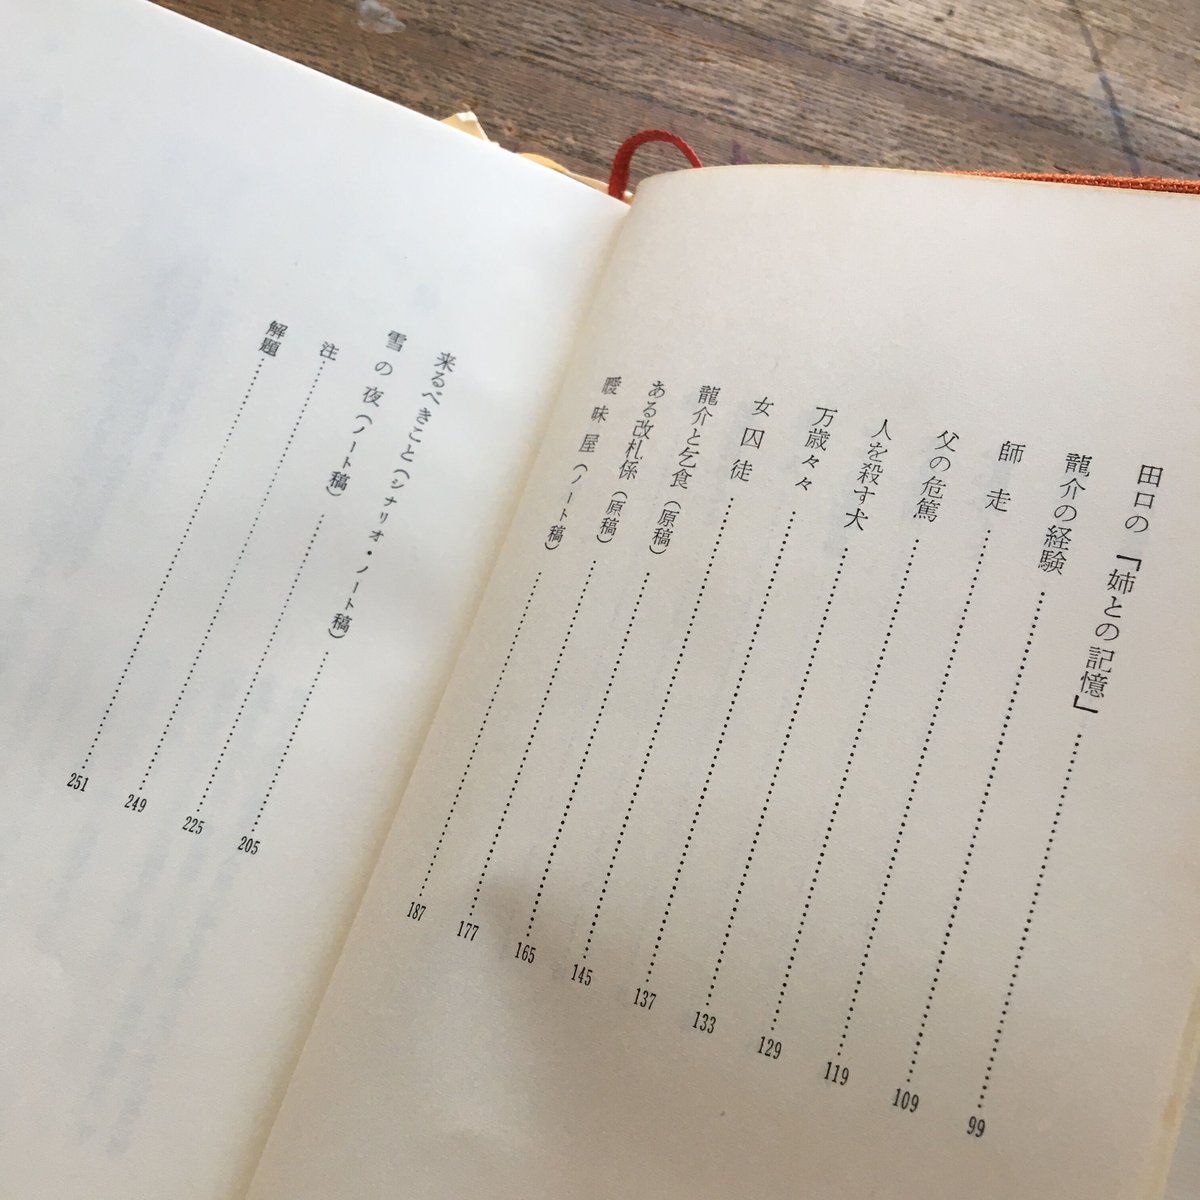 田口の「姉との記憶」……99
龍介の経験……109
師走……119
父の危篤……129
人を殺す犬……133
万歳々々……137
女囚徒……145
龍介と乞食(原稿)……165
ある改札係(原稿)……177
曖昧屋(ノート稿)……187
来るべきこと(シナリオ・ノート稿)……205
雪の夜(ノート稿)……225
注……249
解題……251